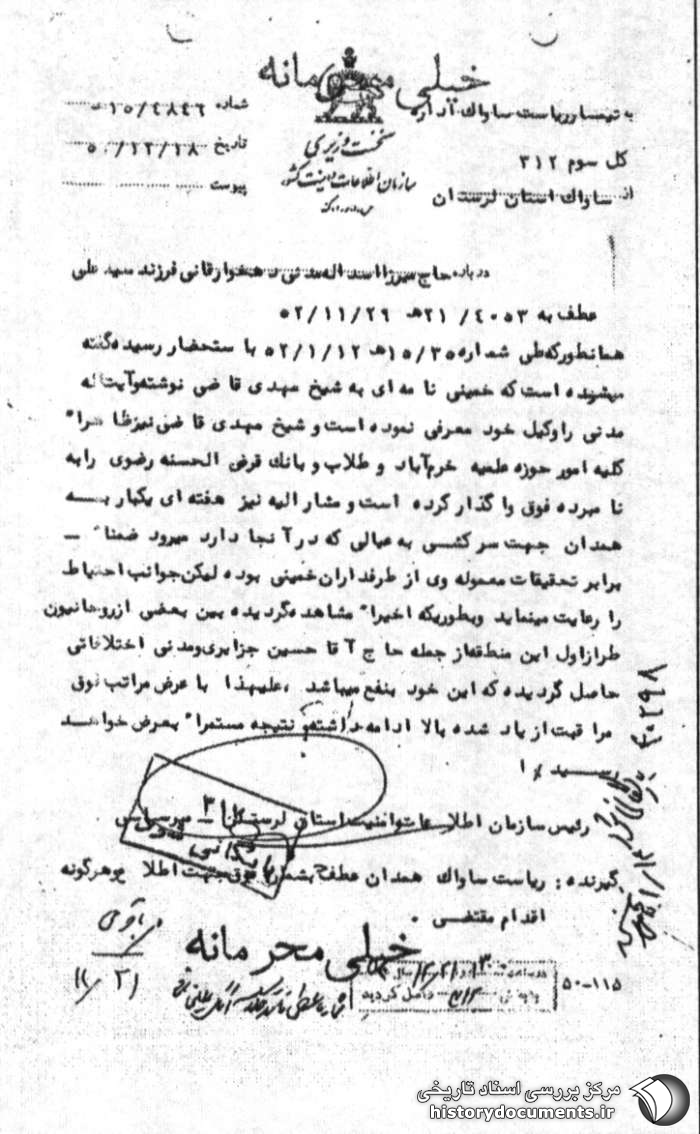 خیلی محرمانه
به تیمسار ریاست ساواک اداره
کل سوم ۳۱۲
از ساواک استان لرستان
نخست وزیری
سازمان اطلاعات و امنیت کشور
شماره ۱۵/۴۸۴۶
تاریخ ۵۰/۱۲/۱۸
پیوست
درباره حاج میرزا اسداله مدنی دهخوارقانی فرزند سید علی
عطف به ۴۰۵۳/ ۲۱ه‍ ۵۲/۱۱/۲۹
همانطور که طی شماره ۱۵/۳۵ه‍ ۵۲/۱/۱۲ باستحضار رسیده گفته
میشود است که خمینی نامه ای به شیخ مهدی قاضی نوشته و آیت اله
مدنی را وکیل خود معرفی نموده است و شیخ مهدی قاضی نیز ظاهرا"
کلیه امور حوزه علمیه خرم آباد و طلاب و بانک قرض الحسنه رضوی را به
نامبرده فوق واگذار کرده است و مشارالیه نیز هفته ای یکبار به
همدان جهت سرکشی به عیالی که در آنجا دارد میرود ضمنا"
برابر تحقیقات معموله وی از طرفداران خمینی بوده لیکن جوانب احتیاط
را رعایت مینماید وبطوریکه اخیرا" مشاهده گردیده بین بعضی از روحانیون
طراز اول این منطقه از جمله حاج آقا حسین جزایری و مدنی اختلافاتی
حاصل گردیده که این خود بنفع میباشد ، علیهذا با عرض مراتب فوق
مراقبت از یاد شده بالا ادامه داشته و نتیجه مستمرا" بعرض خواهد
رسید / ا
رئیس سازمان اطلاعات و امنیت استان لرستان
بایگانی شود
گیرنده : ریاست ساواک همدان عطف بشماره فوق جهت اطلاع و هرگونه
اقدام مقتضی .
خیلی محرمانه
۵۰-۱۱۵
حاصل گردید
مرکز بررسی اسناد تاریخی
historydocuments.ir